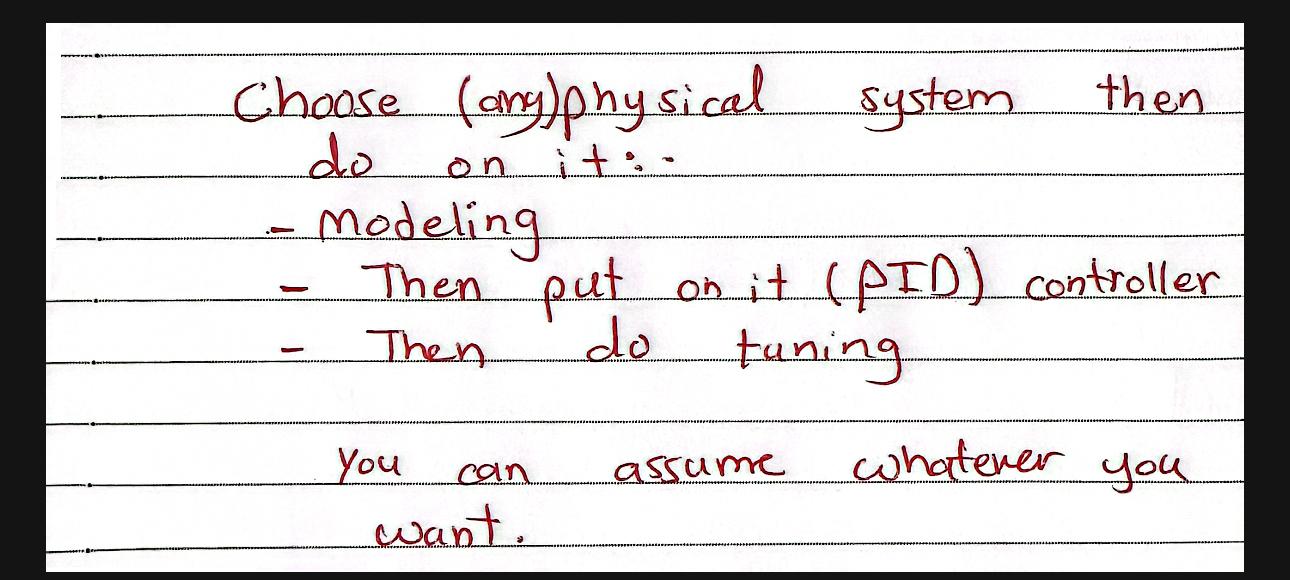 Choose (any)physical system then
do on it:-
- Modeling
- Then put on it (PID) controller
- Then do tuning
you can assume whatever you
want.